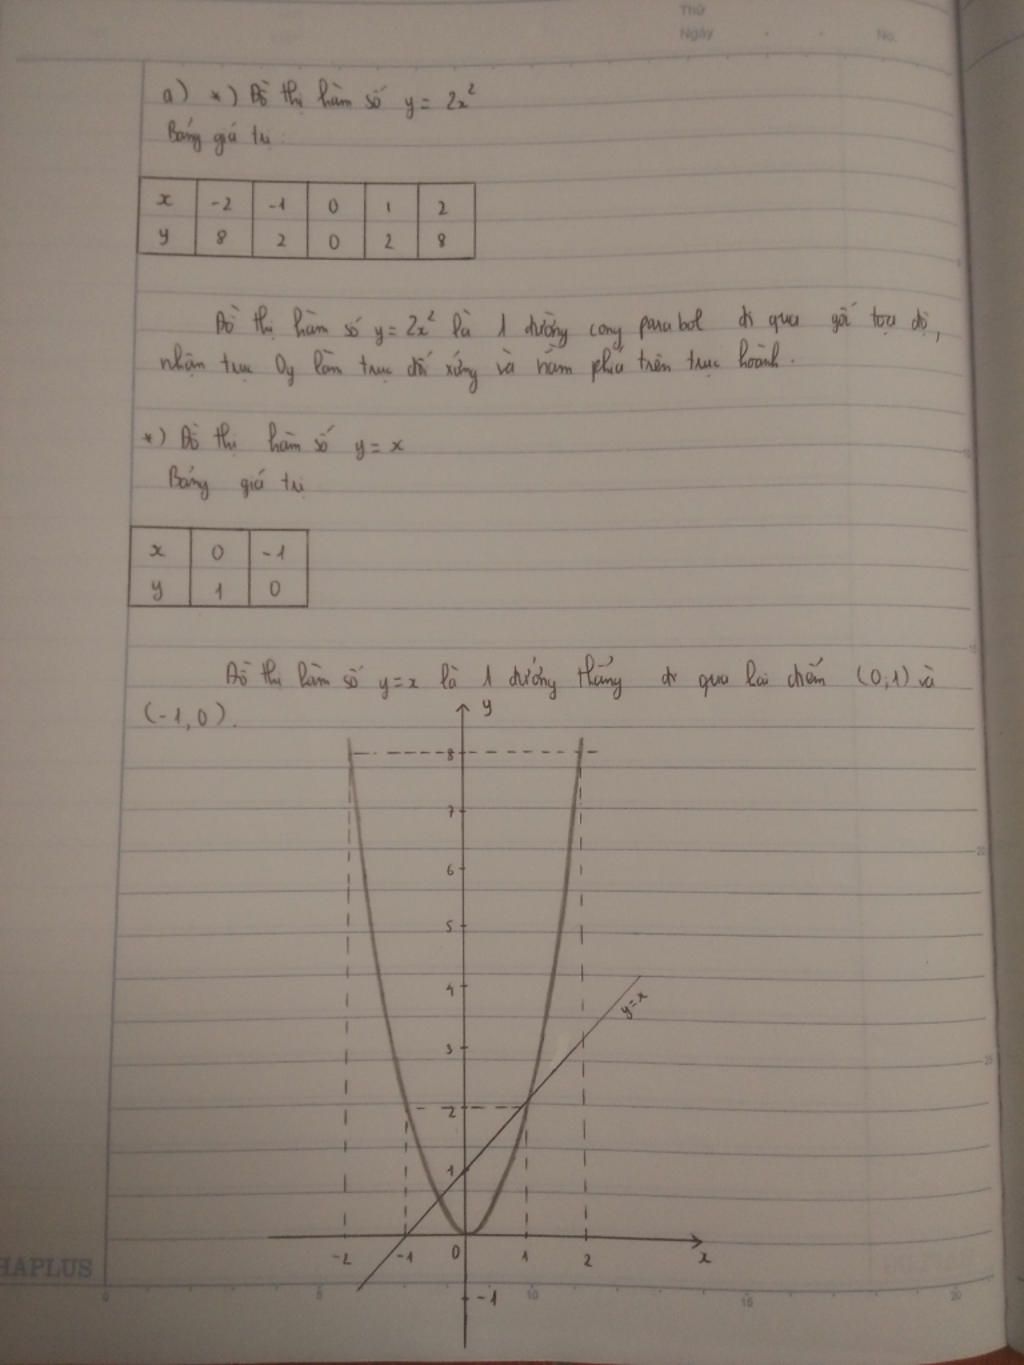 Thứ
Ngày
No.
a) *) Đồ thị hàm số y = 2x²
Bảng giá trị:
x -2 -1 0 1 2
y 8 2 0 2 8
Đồ thị hàm số y = 2x² là 1 đường cong parabol đi qua gốc toạ độ,
nhận trục Oy làm trục đối xứng và nằm phía trên trục hoành.
*) Đồ thị hàm số y = x
Bảng giá trị
x 0 -1
y 1 0
Đồ thị hàm số y = x là 1 đường thẳng đi qua hai điểm (0,1) và
(-1,0).
y
8
7
6
5
4
y=x
3
2
1
-2 -1 0 1 2 x
-1
HAPLUS
0 5 10 15 20
5
10
15
20
25